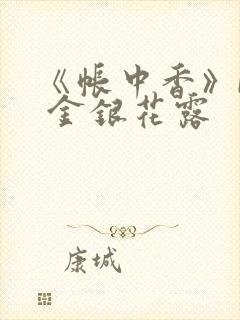 《帐中香》
金银花露
康城